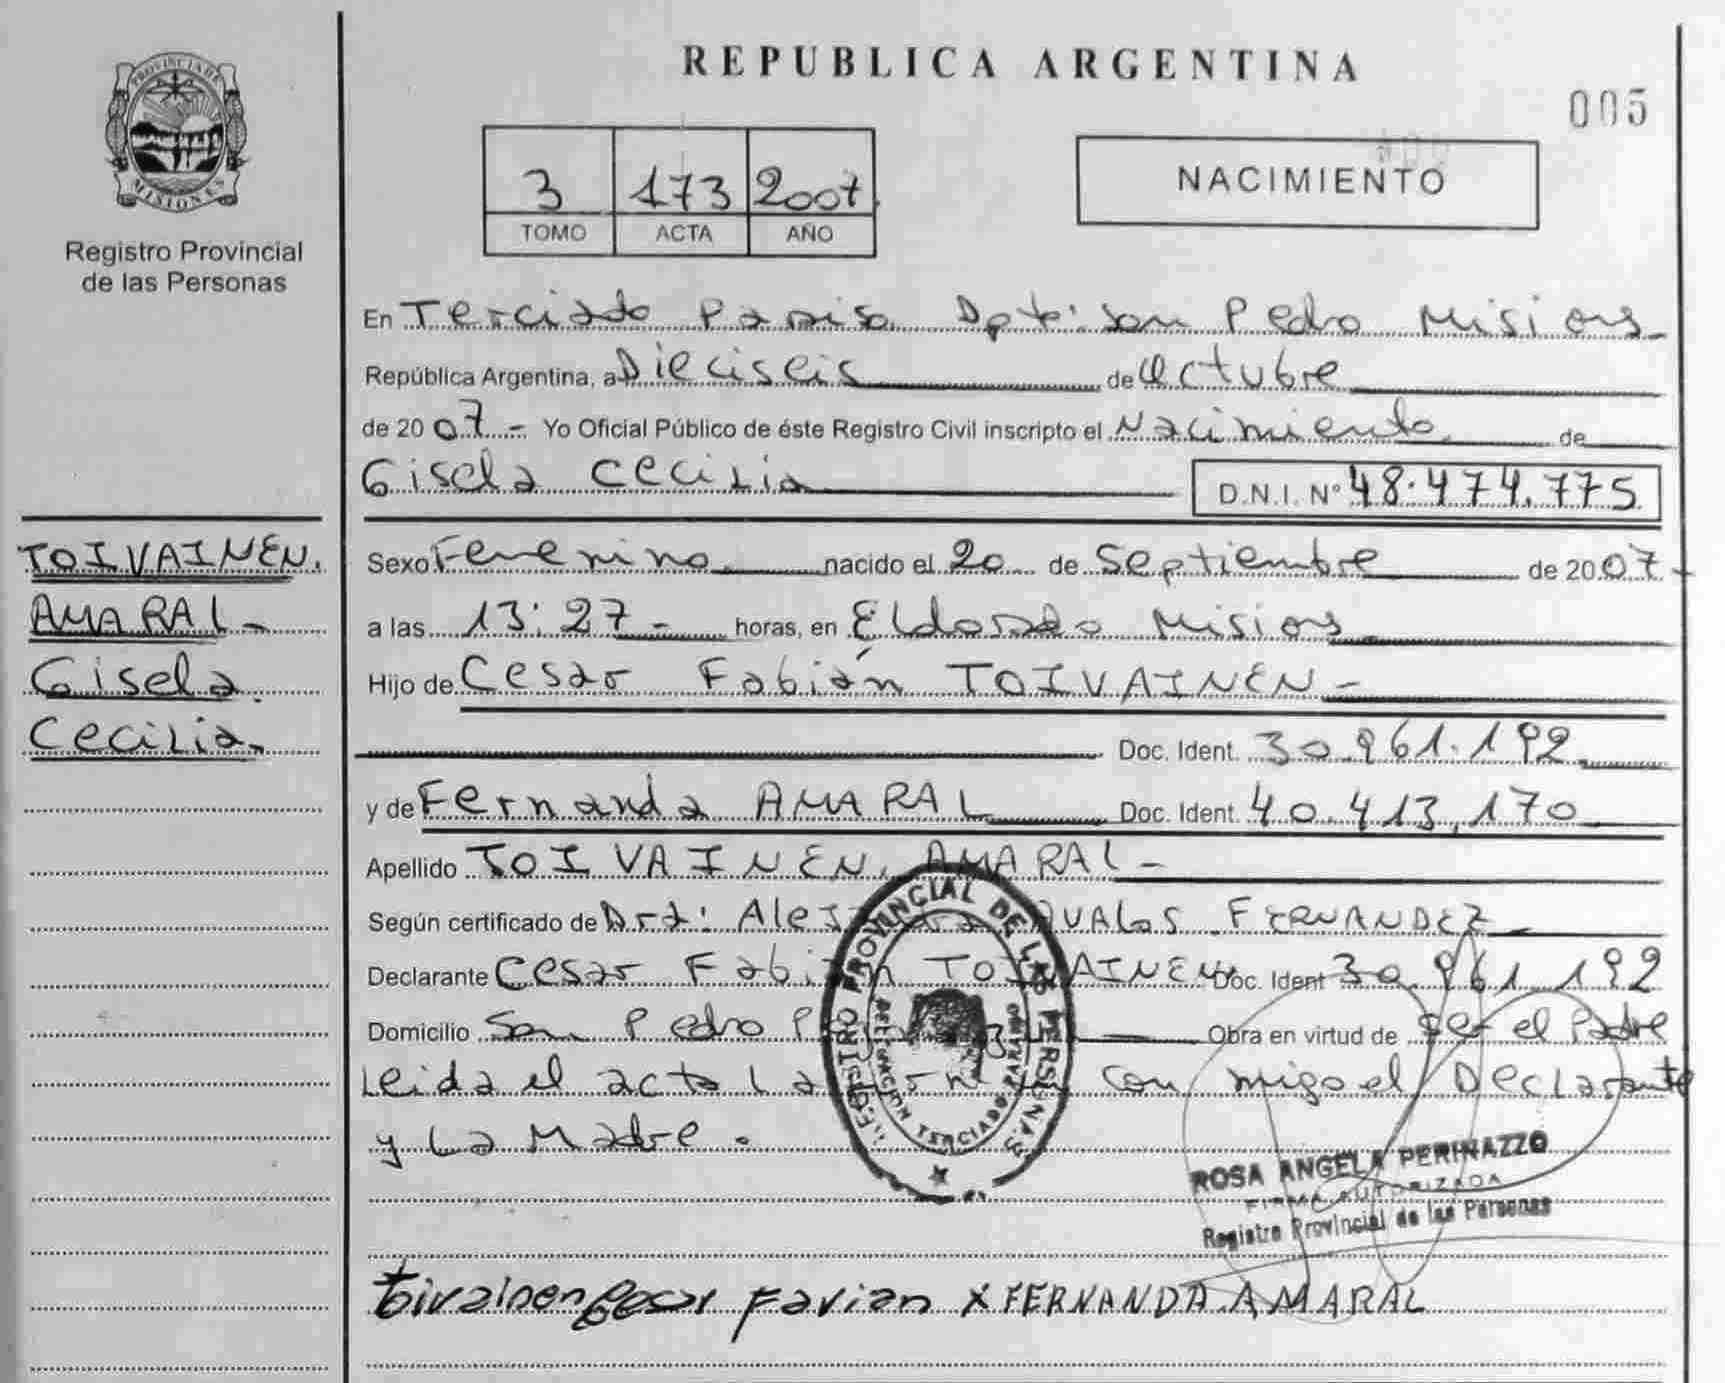 REPUBLICA ARGENTINA
005
PROVINCIA DE
MISIONES
Registro Provincial
de las Personas
3 173 2007
TOMO ACTA AÑO
NACIMIENTO
En Terciado Paraiso Dpto: San Pedro Misiones
República Argentina, a Dieciseis de Octubre
de 2007.- Yo Oficial Público de éste Registro Civil inscripto el Nacimiento de
Gisela Cecilia D.N.I. Nº 48.474.775
TOIVAINEN.
AMARAL-
Gisela
Cecilia.
Sexo Femenino nacido el 20 de Septiembre de 2007-
a las 13:27- horas, en Eldorado Misiones
Hijo de Cesar Fabián TOIVAINEN-
Doc. Ident. 30.961.192
y de Fernanda AMARAL Doc. Ident. 40.413.170
Apellido TOIVAINEN, AMARAL-
Según certificado de Dra: AVALOS FERNANDEZ
Declarante Cesar TOIVAINEN Doc. Ident 30.961.192
Domicilio San Pedro Obra en virtud de ser el Padre
Leida el acta La con migo el Declarante
y La Madre.
REGISTRO PROVINCIAL DE LAS PERSONAS
DELEGACION TERCIADO PARAISO
ROSA ANGELA PERINAZZO
FIRMA AUTORIZADA
Registro Provincial de las Personas
toivainen Cesar Favian X FERNANDA AMARAL